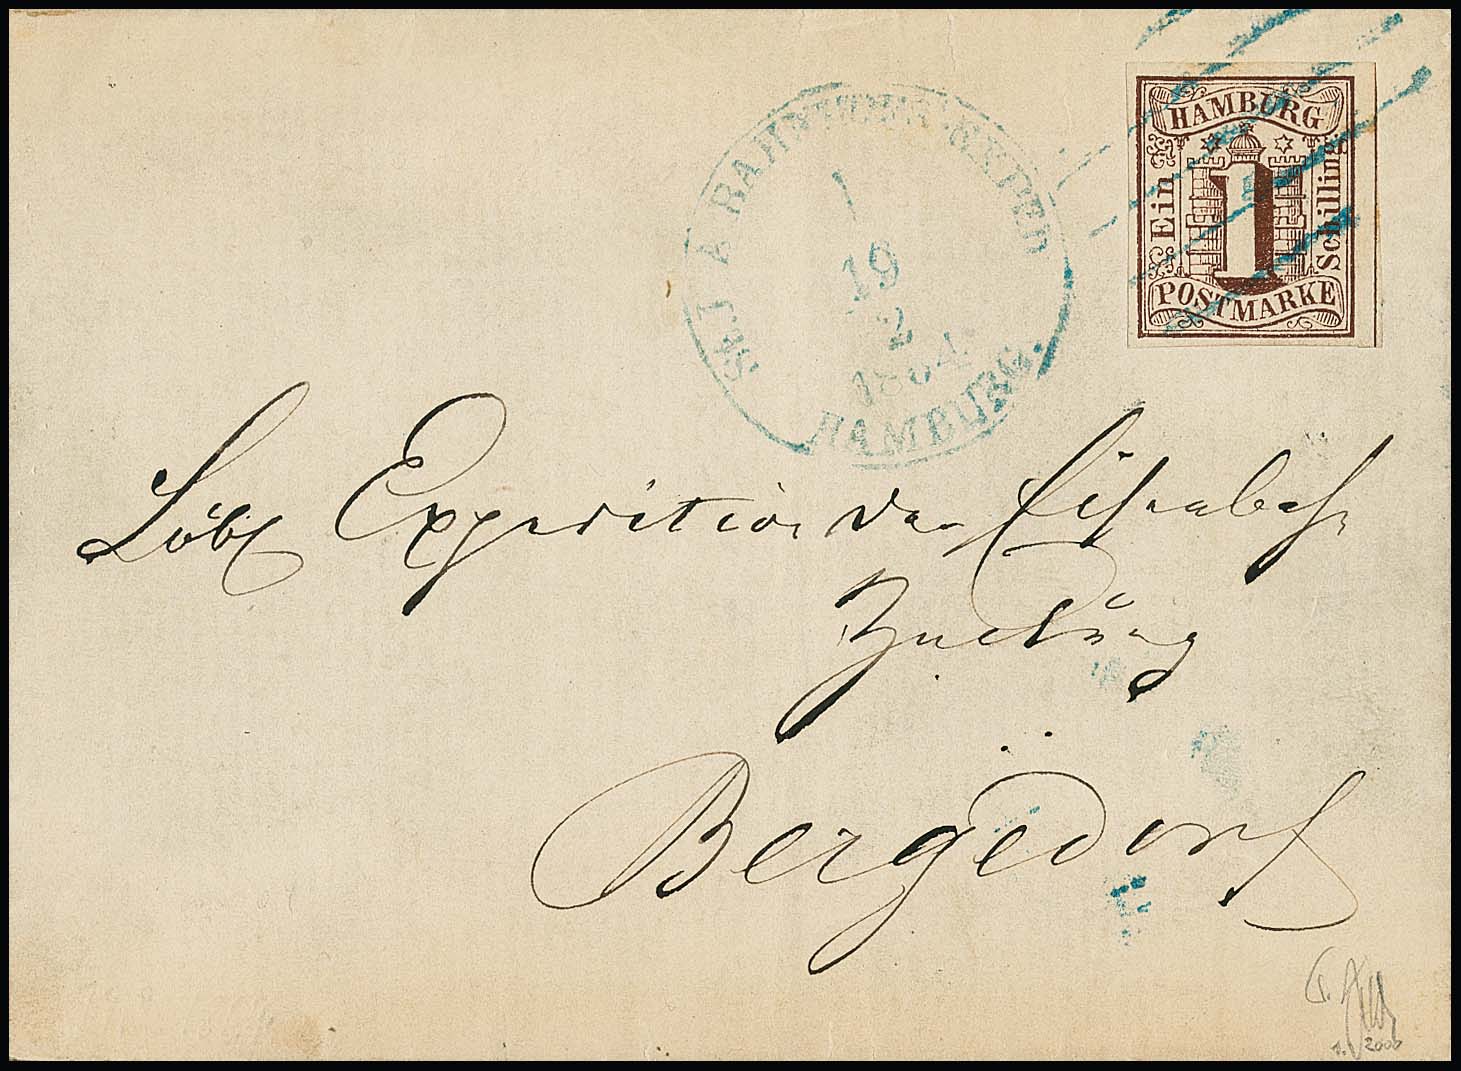 HAMBURG
Ein
1
Schilling
POSTMARKE
ST. P. A. BAHNHOFS-EXPED
19
2
1864
HAMBURG.
Löbl Expedition der Eisenbahn
Zeitung
Bergedorf
2000